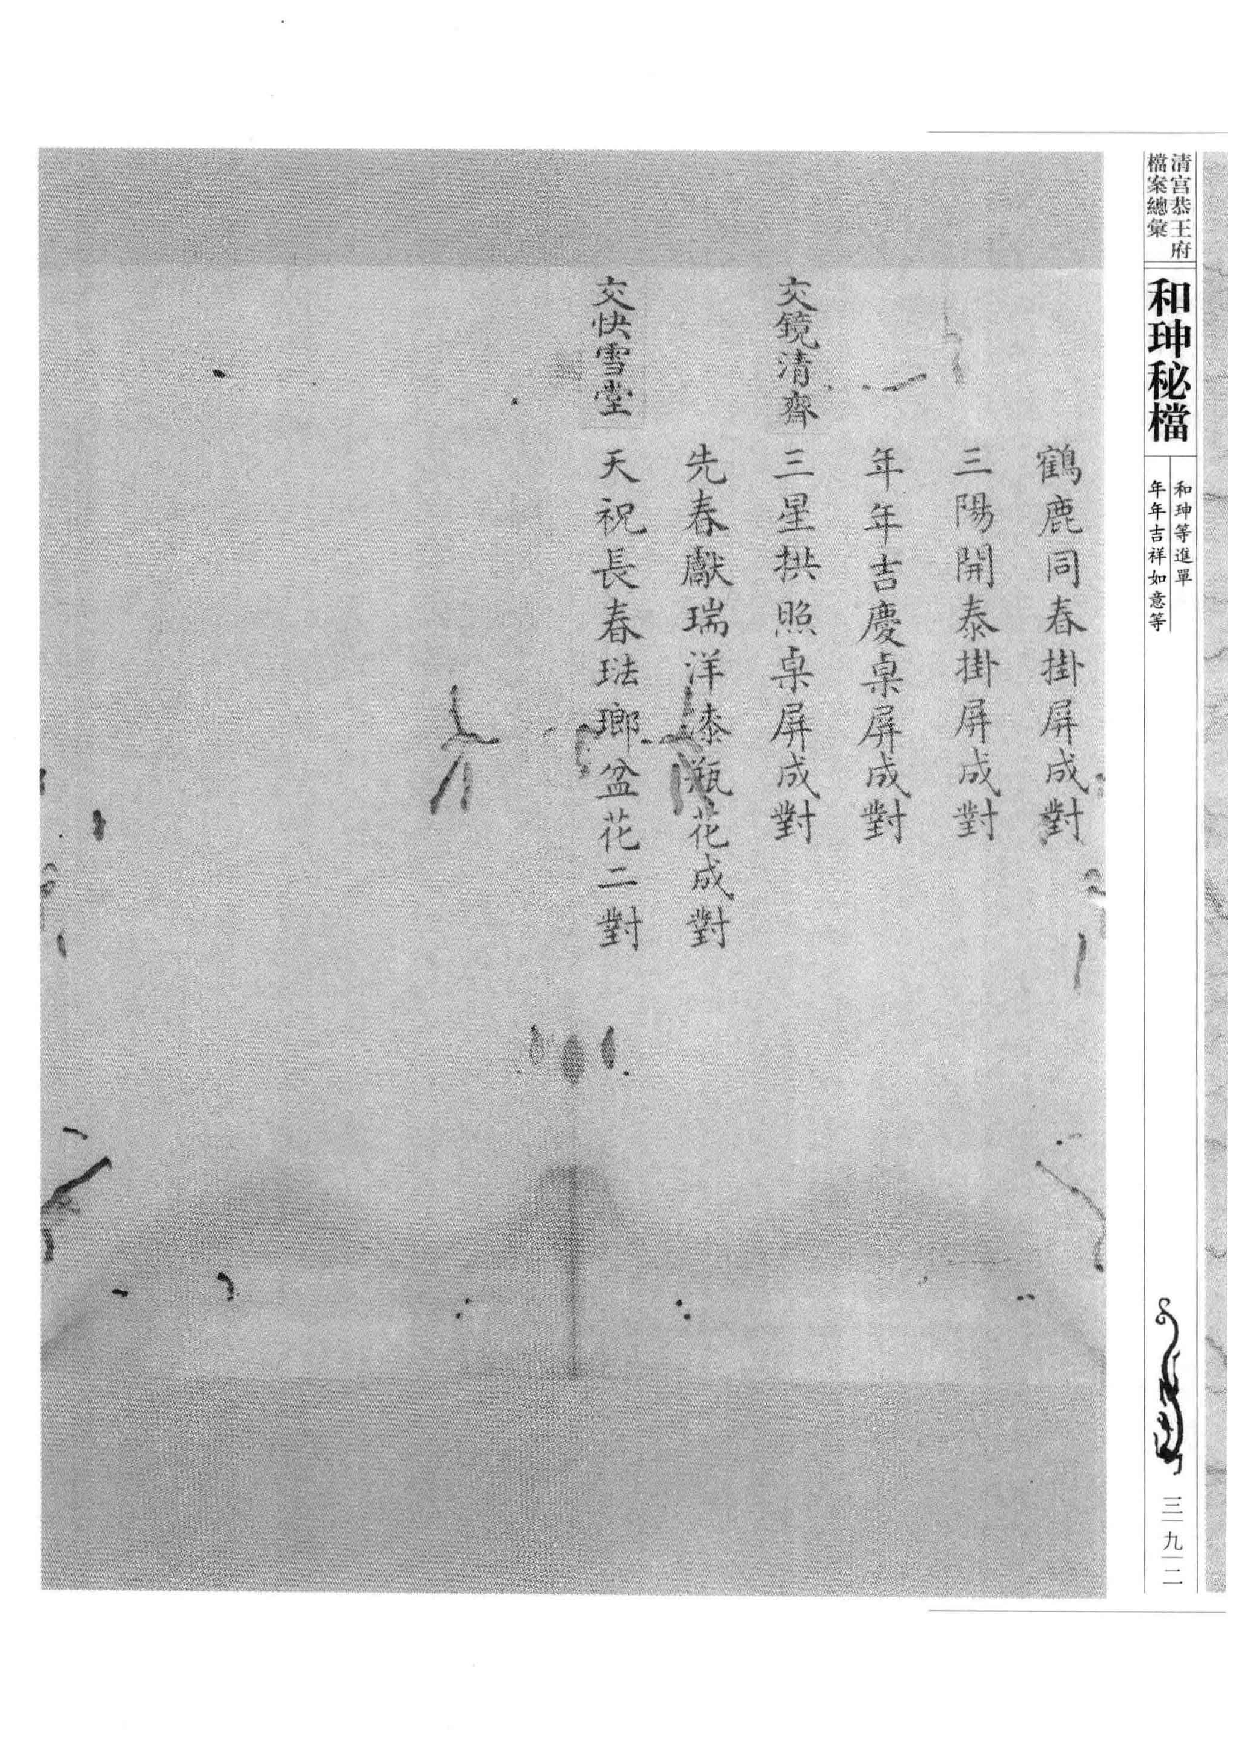 清宮恭王府
檔案總彙
和珅秘檔
和珅等進單
年年吉祥如意等
鶴鹿同春掛屏成對
三陽開泰掛屏成對
年年吉慶桌屏成對
交鏡清齋
三星拱照桌屏成對
先春獻瑞洋漆瓶花成對
交快雪堂
天祝長春琺瑯盆花二對
三九二